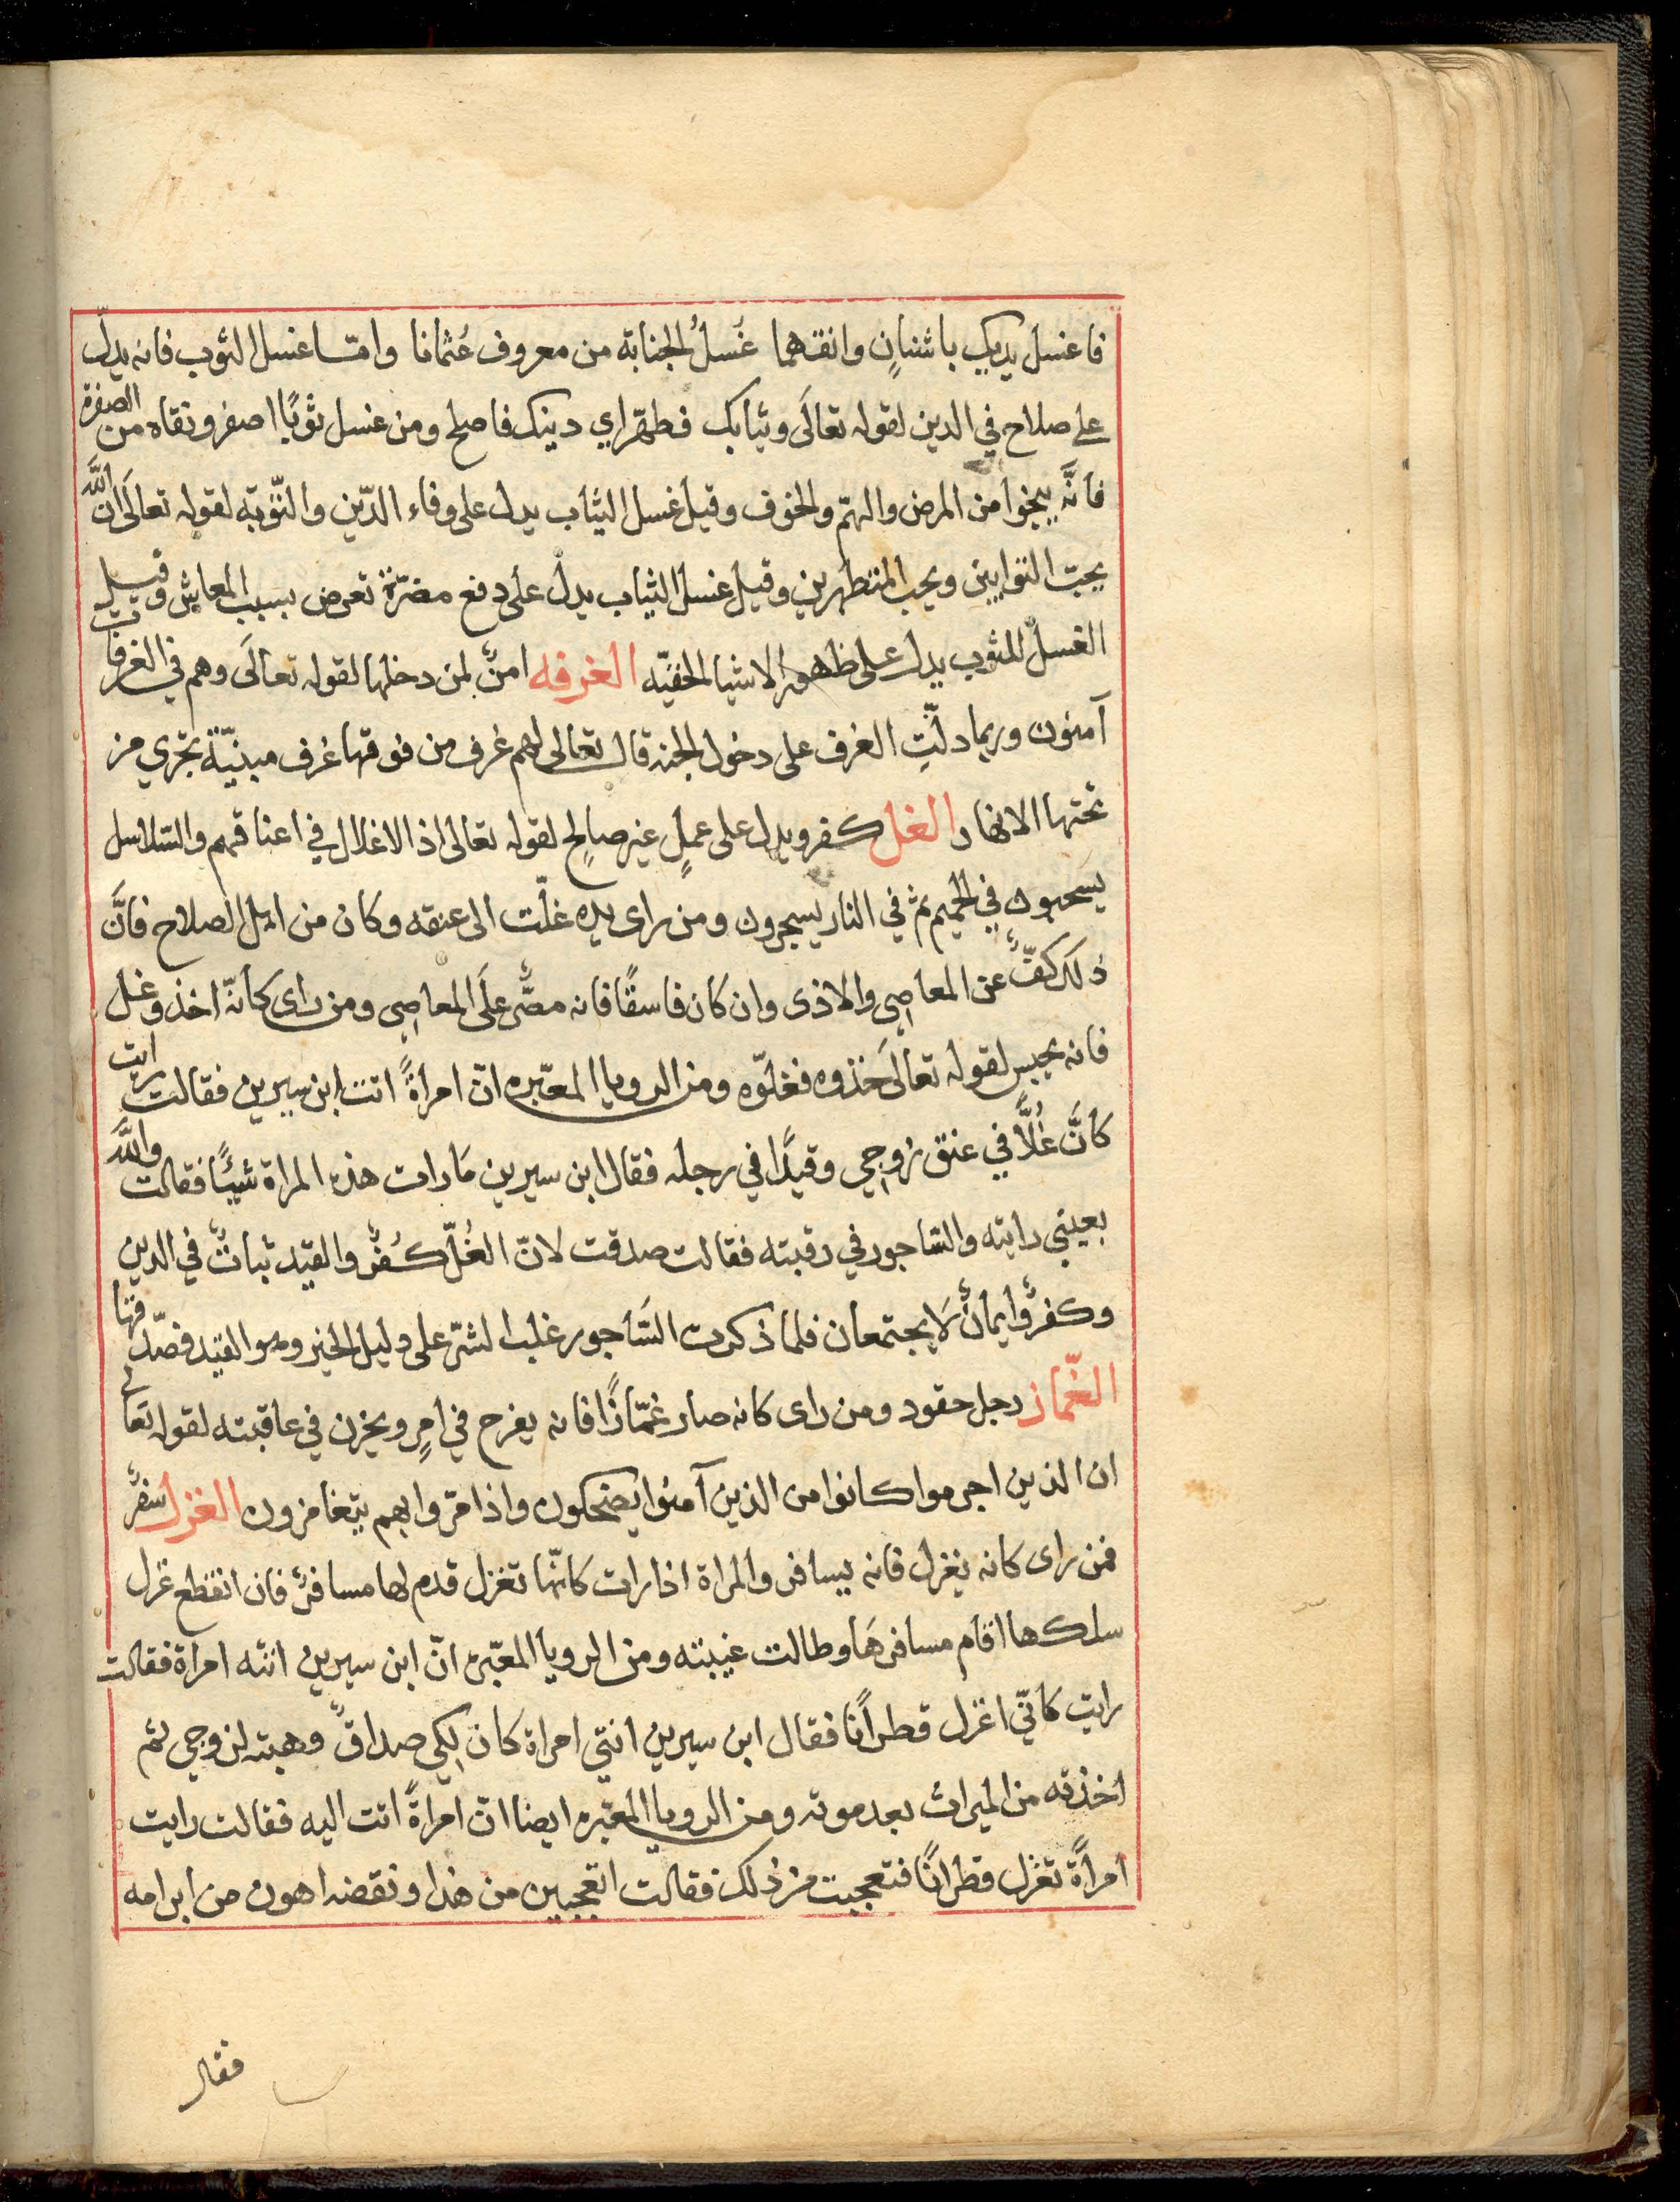 فاغسل يديك باشنانٍ وانقهما غُسلُ الجنابة من معروف عُثمانا وامّا غسل الثوب فانه يدلّ
على صلاح في الدين لقوله تعالَى وثيابك فطهّر اي دينك فاصلح ومن غسل ثوبًا اصفر ونقاه من الصفرة
فانَّه ينجوا من المرض والهمّ والخوف وقيل غسل الثياب يدل على وفاء الدّين والتّوبة لقوله تعالَى انّ اللّه
يحبّ التوابين ويحب المتطهرين وقيل غسل الثياب يدل على دفع مضرّة تعرض بسبب المعايش وقيل
الغسل للثوب يدل على ظهور الاشيا الخفيّه الغرفه امنٌ لمن دخلها لقوله تعالَى وهم في الغرفات
آمنون وربما دلّتِ الغرف على دخول الجنه قال تعالى لهم غرف من فوقها غرف مبنيّة تجري من
تحتها الانهار الغل كفر ويدل على عملٍ غير صالِح لقوله تعالى اذ الاغلال في اعناقهم والسّلاسل
يسحبون في الحميم ثم في النار يسجرون ومن راى يده غلّت الى عنقه وكان من اهل الصلاح فانَّ
ذلك كفٌّ عن المعاصِي والاذى وان كان فاسقًا فانه مصرٌّ علَى المعاصِي ومن راى كانّه اخذ وغل
فانه يحبس لقوله تعالَى خذوه فغلّوه ومن الرويا المعبّره انّ امراةً اتت ابن سيرين فقالت رايت
كانَّ غُلًّا في عنق زوجي وقيدًا في رجله فقال ابن سيرين مَا رات هذه المراة شيئًا فقالت واللّه
بعيني رايته والسّاجور في رقبته فقالت صدقت لانّ الغُلّ كُفرٌ والقيد ثباتٌ في الدين
وكفرٌ وايمانٌ لَا يجتمعان فلما ذكرت السَّاجور غلب الشرّ على دليل الخير وهو القيد فصدّقها
الغّماز رجل حقود ومن راى كانه صار غمّازًا فانه يفرح في امرٍ ويحزن في عاقبته لقوله تعالى
ان الذين اجرموا كانوا من الذين آمنوا يضحكون واذا مرّوا بهم يتغامزون الغزل سفرٌ
فمن راى كانه يغزل فانه يسافر والمراة اذا رات كانّها تغزل قدم لها مسافرٌ فان انقطع غزل
سلكها اقام مسافرهَا وطالت غيبته ومن الرويا المعبّره انّ ابن سيرين اتته امراة فقالت
رايت كانّي اغزل قطرانًا فقال ابن سيرين انتي امراة كان لكي صداقٌ وهبته لزوجي ثم
اخذته من الميراث بعد موته ومن الرويا المعبّره ايضا انّ امراةً اتت اليه فقالت رايت
امراةً تغزل قطرانًا فتعجبت من ذلك فقالت اتعجبين من هذا ونقضه اهون من ابرامه
فقال